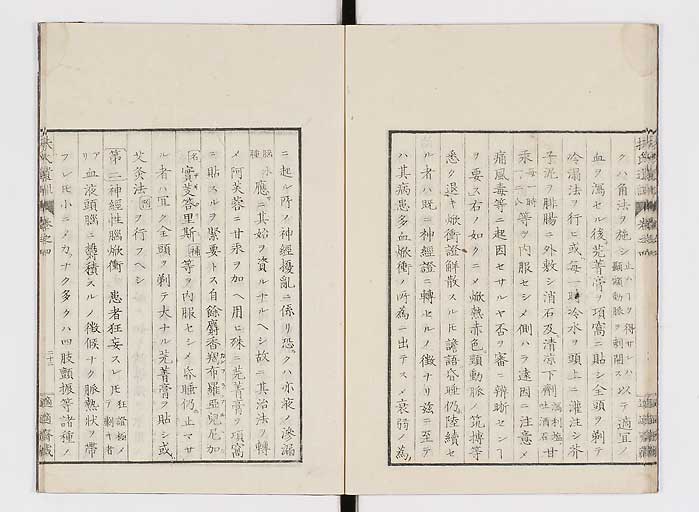 クハ角法ヲ施シ止ハーヲ得サレハ顳顬動脈ヲ刺開ス以テ適宜ノ
血ヲ瀉セル後芫菁膏ヲ項窩ニ貼シ全頭ヲ剃テ
冷溻法ヲ行ヒ或毎一時冷水ヲ頭上ニ灌注シ芥
子泥ヲ腓腸ニ外敷シ消石及清涼下劑甘
乘毎一時等ヲ内服セシメ側ハラ遠因ニ注意メ
痛風毒等ニ起因セサルヤ否ヲ審ニ辨晰センヿ
ヲ要ス右ノ如クニメ焮熱赤色頭動脈ノ筑搏等
悉ク退キ焮衝證解散スルㇳモ譫語昏睡仍陸續セ
ル者ハ既ニ神經證ニ轉セルノ徴ナリ玆ニ至テ
ハ其病患多血焮衝ノ所為ニ出テスメ衰弱ノ為
ニ起ル所ノ神經擾亂ニ係リ恐クハ亦液ノ滲漏
腦水種ニ應ニ其始ヲ資ルナルヘシ故ニ其治法ヲ轉
メ阿芙蓉ニ甘汞ヲ加ヘ用ヒ殊ニ芫菁膏ヲ項窩
ニ貼スルヲ緊要トス自餘麝香羯布羅亞兒尼加
名實芰荅里斯種等ヲ内服セシメ昏睡仍止マサ
ル者ハ宜ク全頭ヲ剃テ大ナル芫菁膏ヲ貼シ或
艾灸法ヲ行フヘシ
第二神經性腦焮衝 患者狂妄スレㇳモ狂證極メテ劇キ者
アリ血液頭腦ニ鬱積スルノ徴候ナク脈熱状ヲ帶
フレㇳモ小ニメ力ナク多クハ四肢顫振等諸種ノ